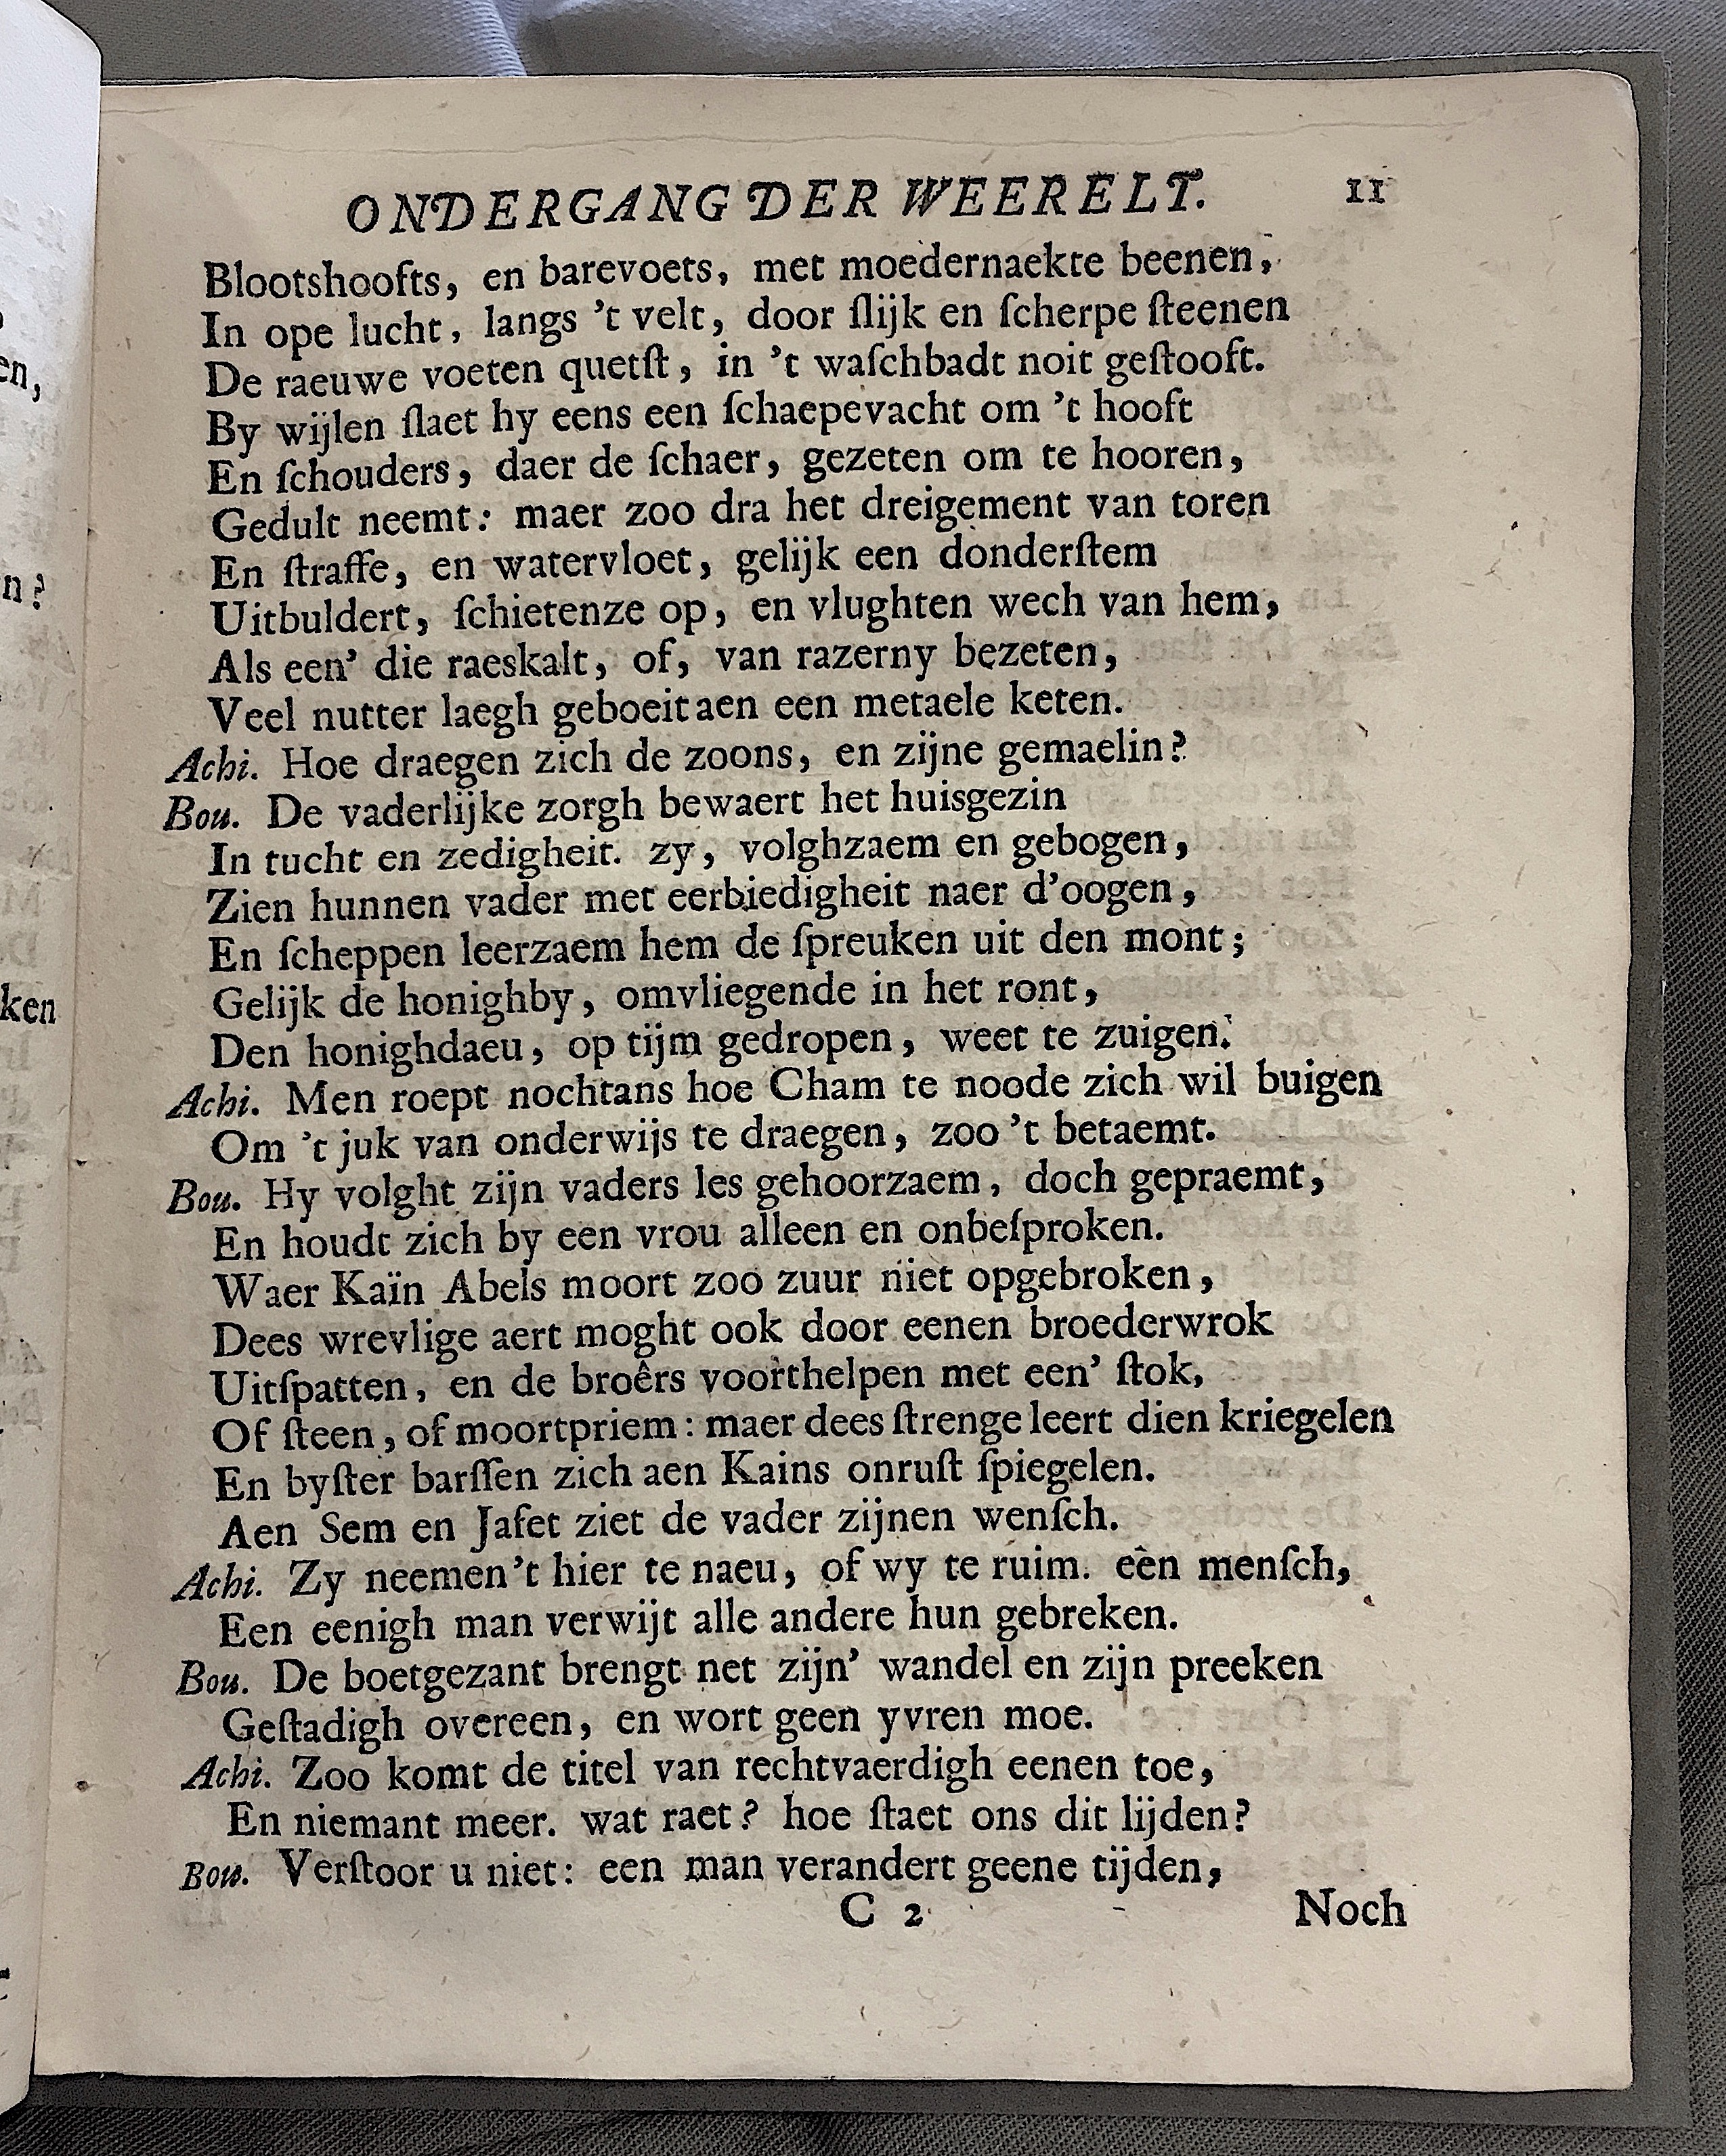 ONDERGANG DER WEERELT. 11
Blootshoofts, en barevoets, met moedernaekte beenen,
In ope lucht, langs 't velt, door ſlijk en ſcherpe ſteenen
De raeuwe voeten quetſt, in 't waſchbadt noit geſtooft.
By wijlen ſlaet hy eens een ſchaepevacht om 't hooft
En ſchouders, daer de ſchaer, gezeten om te hooren,
Gedult neemt: maer zoo dra het dreigement van toren
En ſtraffe, en watervloet, gelijk een donderſtem
Uitbuldert, ſchietenze op, en vlughten wech van hem,
Als een' die raeskalt, of, van razerny bezeten,
Veel nutter laegh geboeit aen een metaele keten.
Achi. Hoe draegen zich de zoons, en zijne gemaelin?
Bou. De vaderlijke zorgh bewaert het huisgezin
In tucht en zedigheit. zy, volghzaem en gebogen,
Zien hunnen vader met eerbiedigheit naer d'oogen,
En ſcheppen leerzaem hem de ſpreuken uit den mont;
Gelijk de honighby, omvliegende in het ront,
Den honighdaeu, op tijm gedropen, weet te zuigen.
Achi. Men roept nochtans hoe Cham te noode zich wil buigen
Om 't juk van onderwijs te draegen, zoo 't betaemt.
Bou. Hy volght zijn vaders les gehoorzaem, doch gepraemt,
En houdt zich by een vrou alleen en onbeſproken.
Waer Kaïn Abels moort zoo zuur niet opgebroken,
Dees wrevlige aert moght ook door eenen broederwrok
Uitſpatten, en de broêrs voorthelpen met een' ſtok,
Of ſteen, of moortpriem: maer dees ſtrenge leert dien kriegelen
En byſter barſſen zich aen Kains onruſt ſpiegelen.
Aen Sem en Jafet ziet de vader zijnen wenſch.
Achi. Zy neemen't hier te naeu, of wy te ruim. eèn menſch,
Een eenigh man verwijt alle andere hun gebreken.
Bou. De boetgezant brengt net zijn' wandel en zijn preeken
Geſtadigh overeen, en wort geen yvren moe.
Achi. Zoo komt de titel van rechtvaerdigh eenen toe,
En niemant meer. wat raet? hoe ſtaet ons dit lijden?
Bou. Verſtoor u niet: een man verandert geene tijden,
C 2 Noch
en,
n?
ken